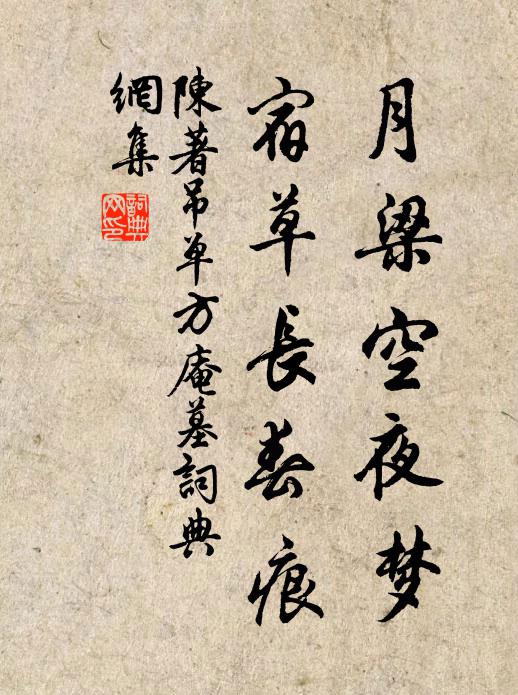 月梁空夜梦
宿草長春痕
陳著吊单方庵墓詞典
網集
詞典
网印